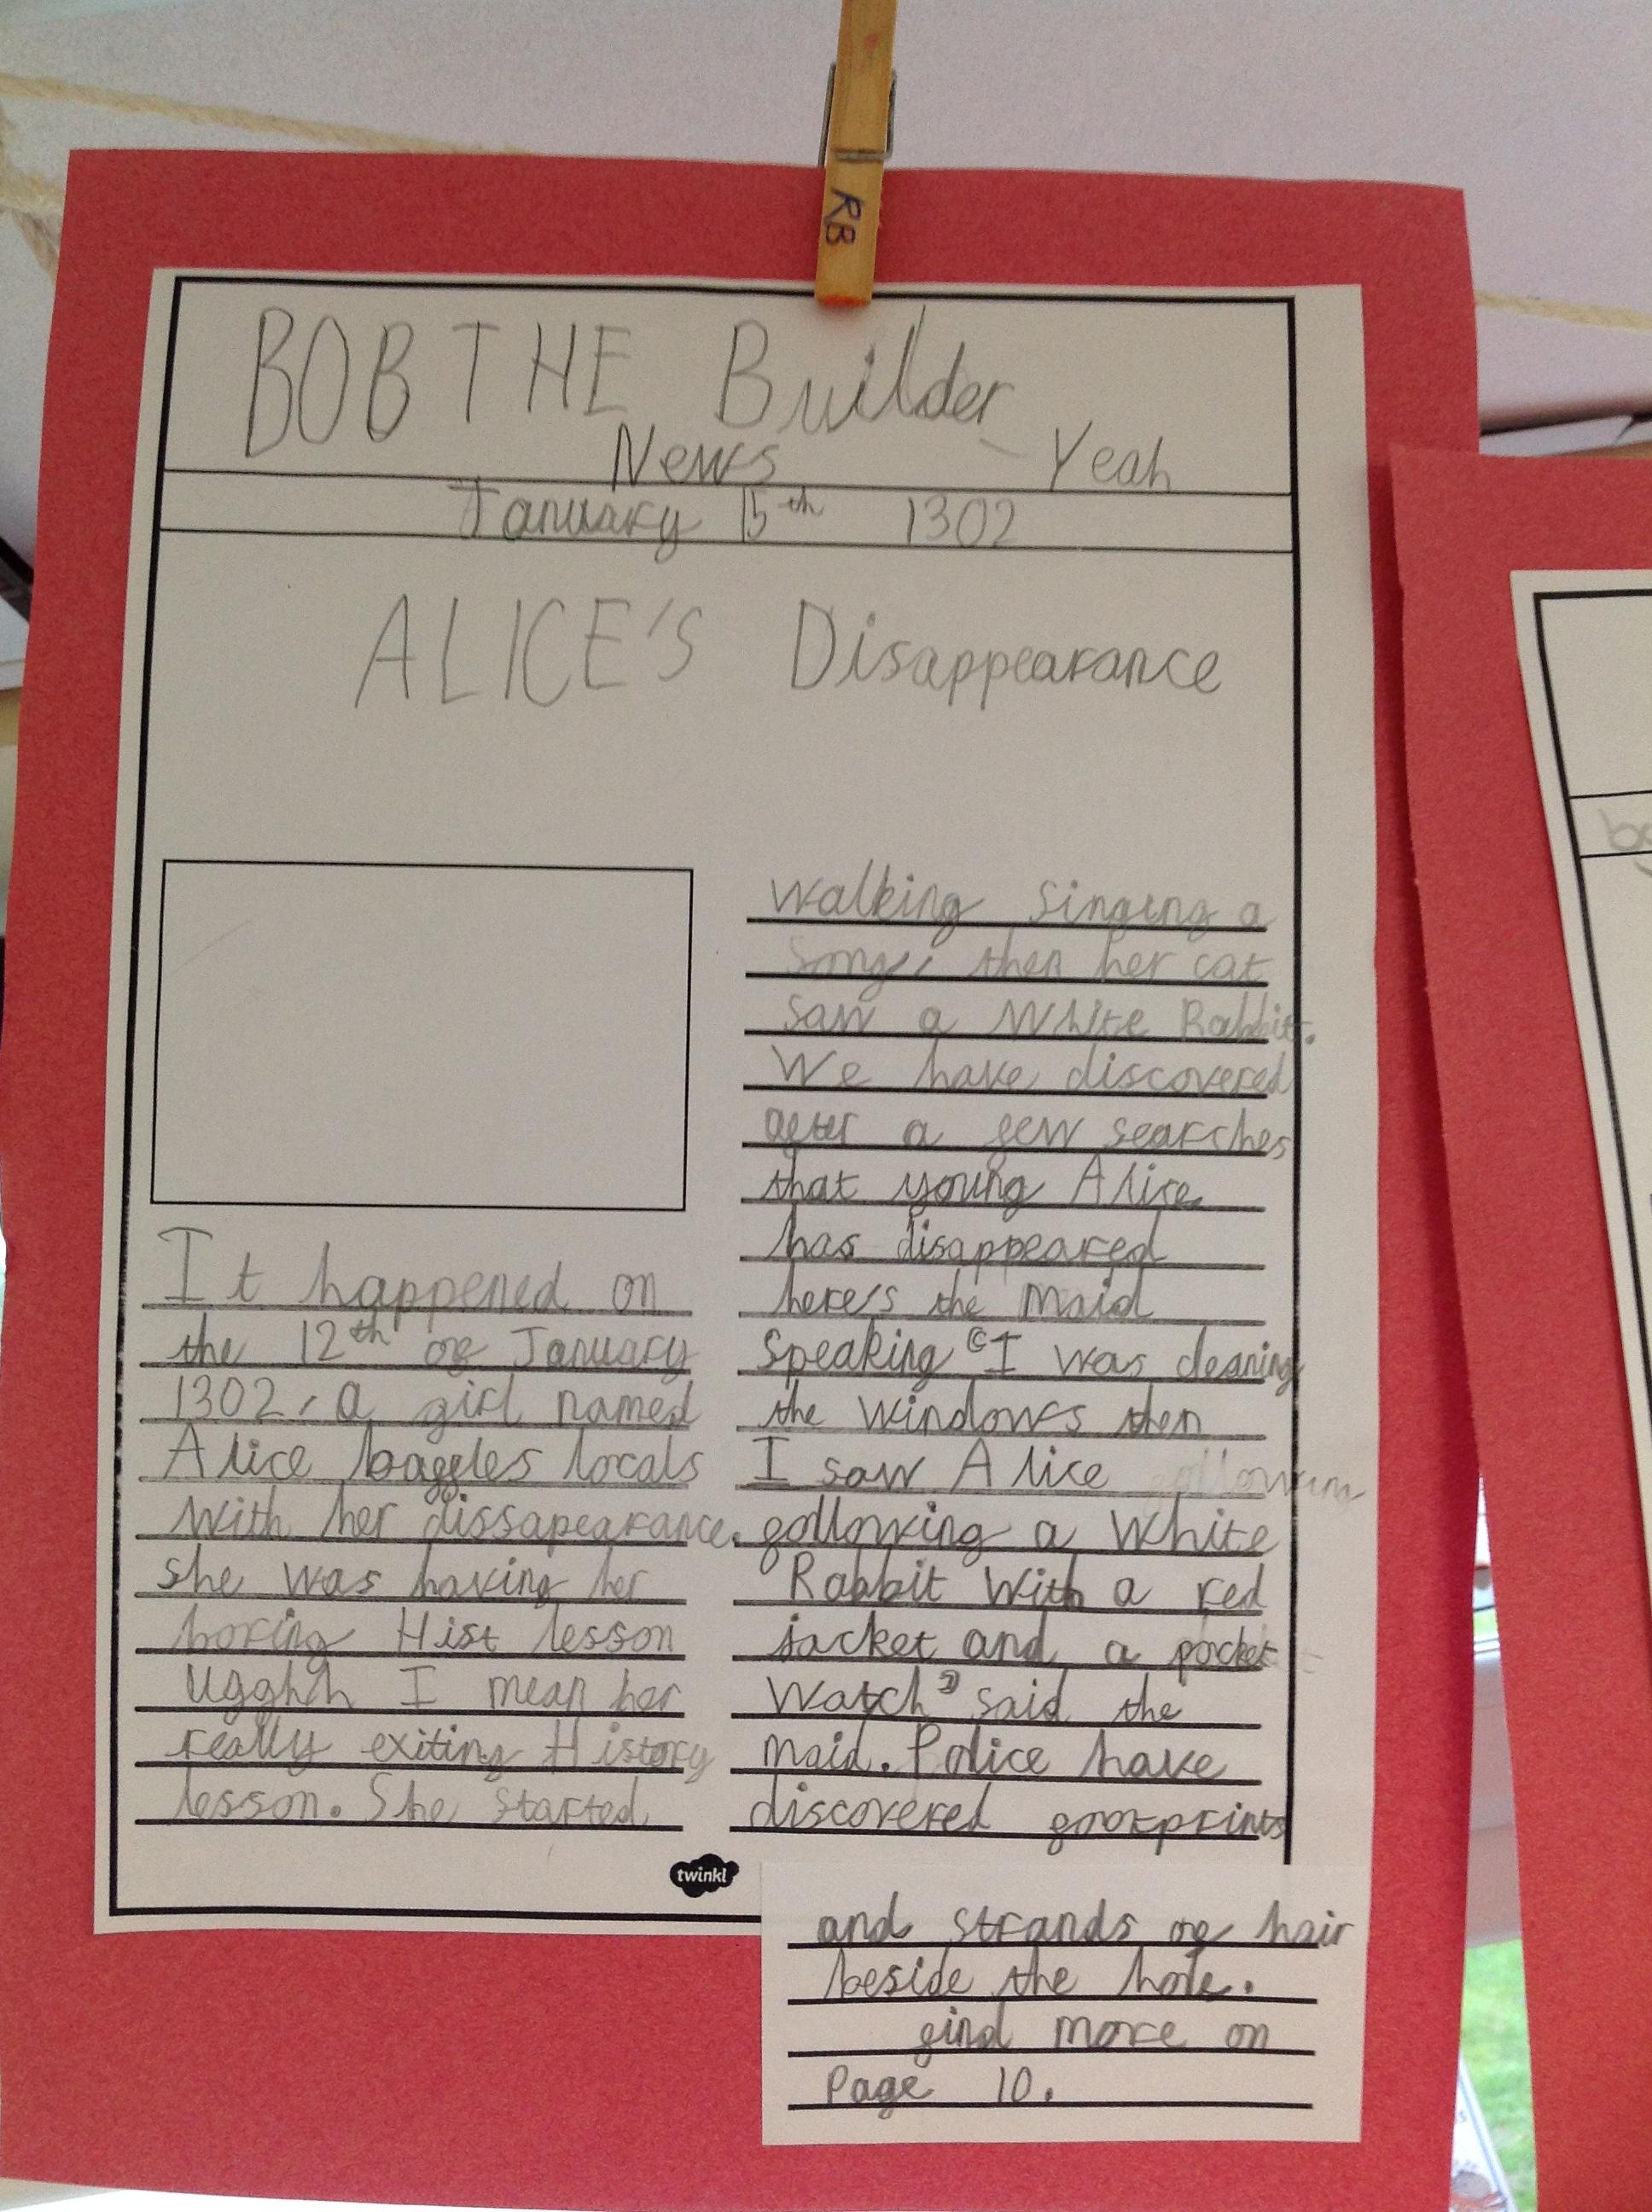 RB
BOB THE Builder
News Yeah
January 15th 1302
ALICE'S Disappearance
It happened on
the 12th of January
1302, a girl named
Alice baffles locals
with her dissapearance.
She was having her
boring Hist lesson
Ugghhh I mean her
really exiting History
lesson. She started
walking singing a
song, then her cat
saw a White Rabbit.
We have discovered
after a few searches
that young Alice
has disappeared
here's the maid
speaking "I was cleaning
the windows then
I saw Alice
following a White
Rabbit with a red
jacket and a pocket
watch" said the
maid. Police have
discovered footprints
twinkl
and strands of hair
beside the hole.
find more on
Page 10.